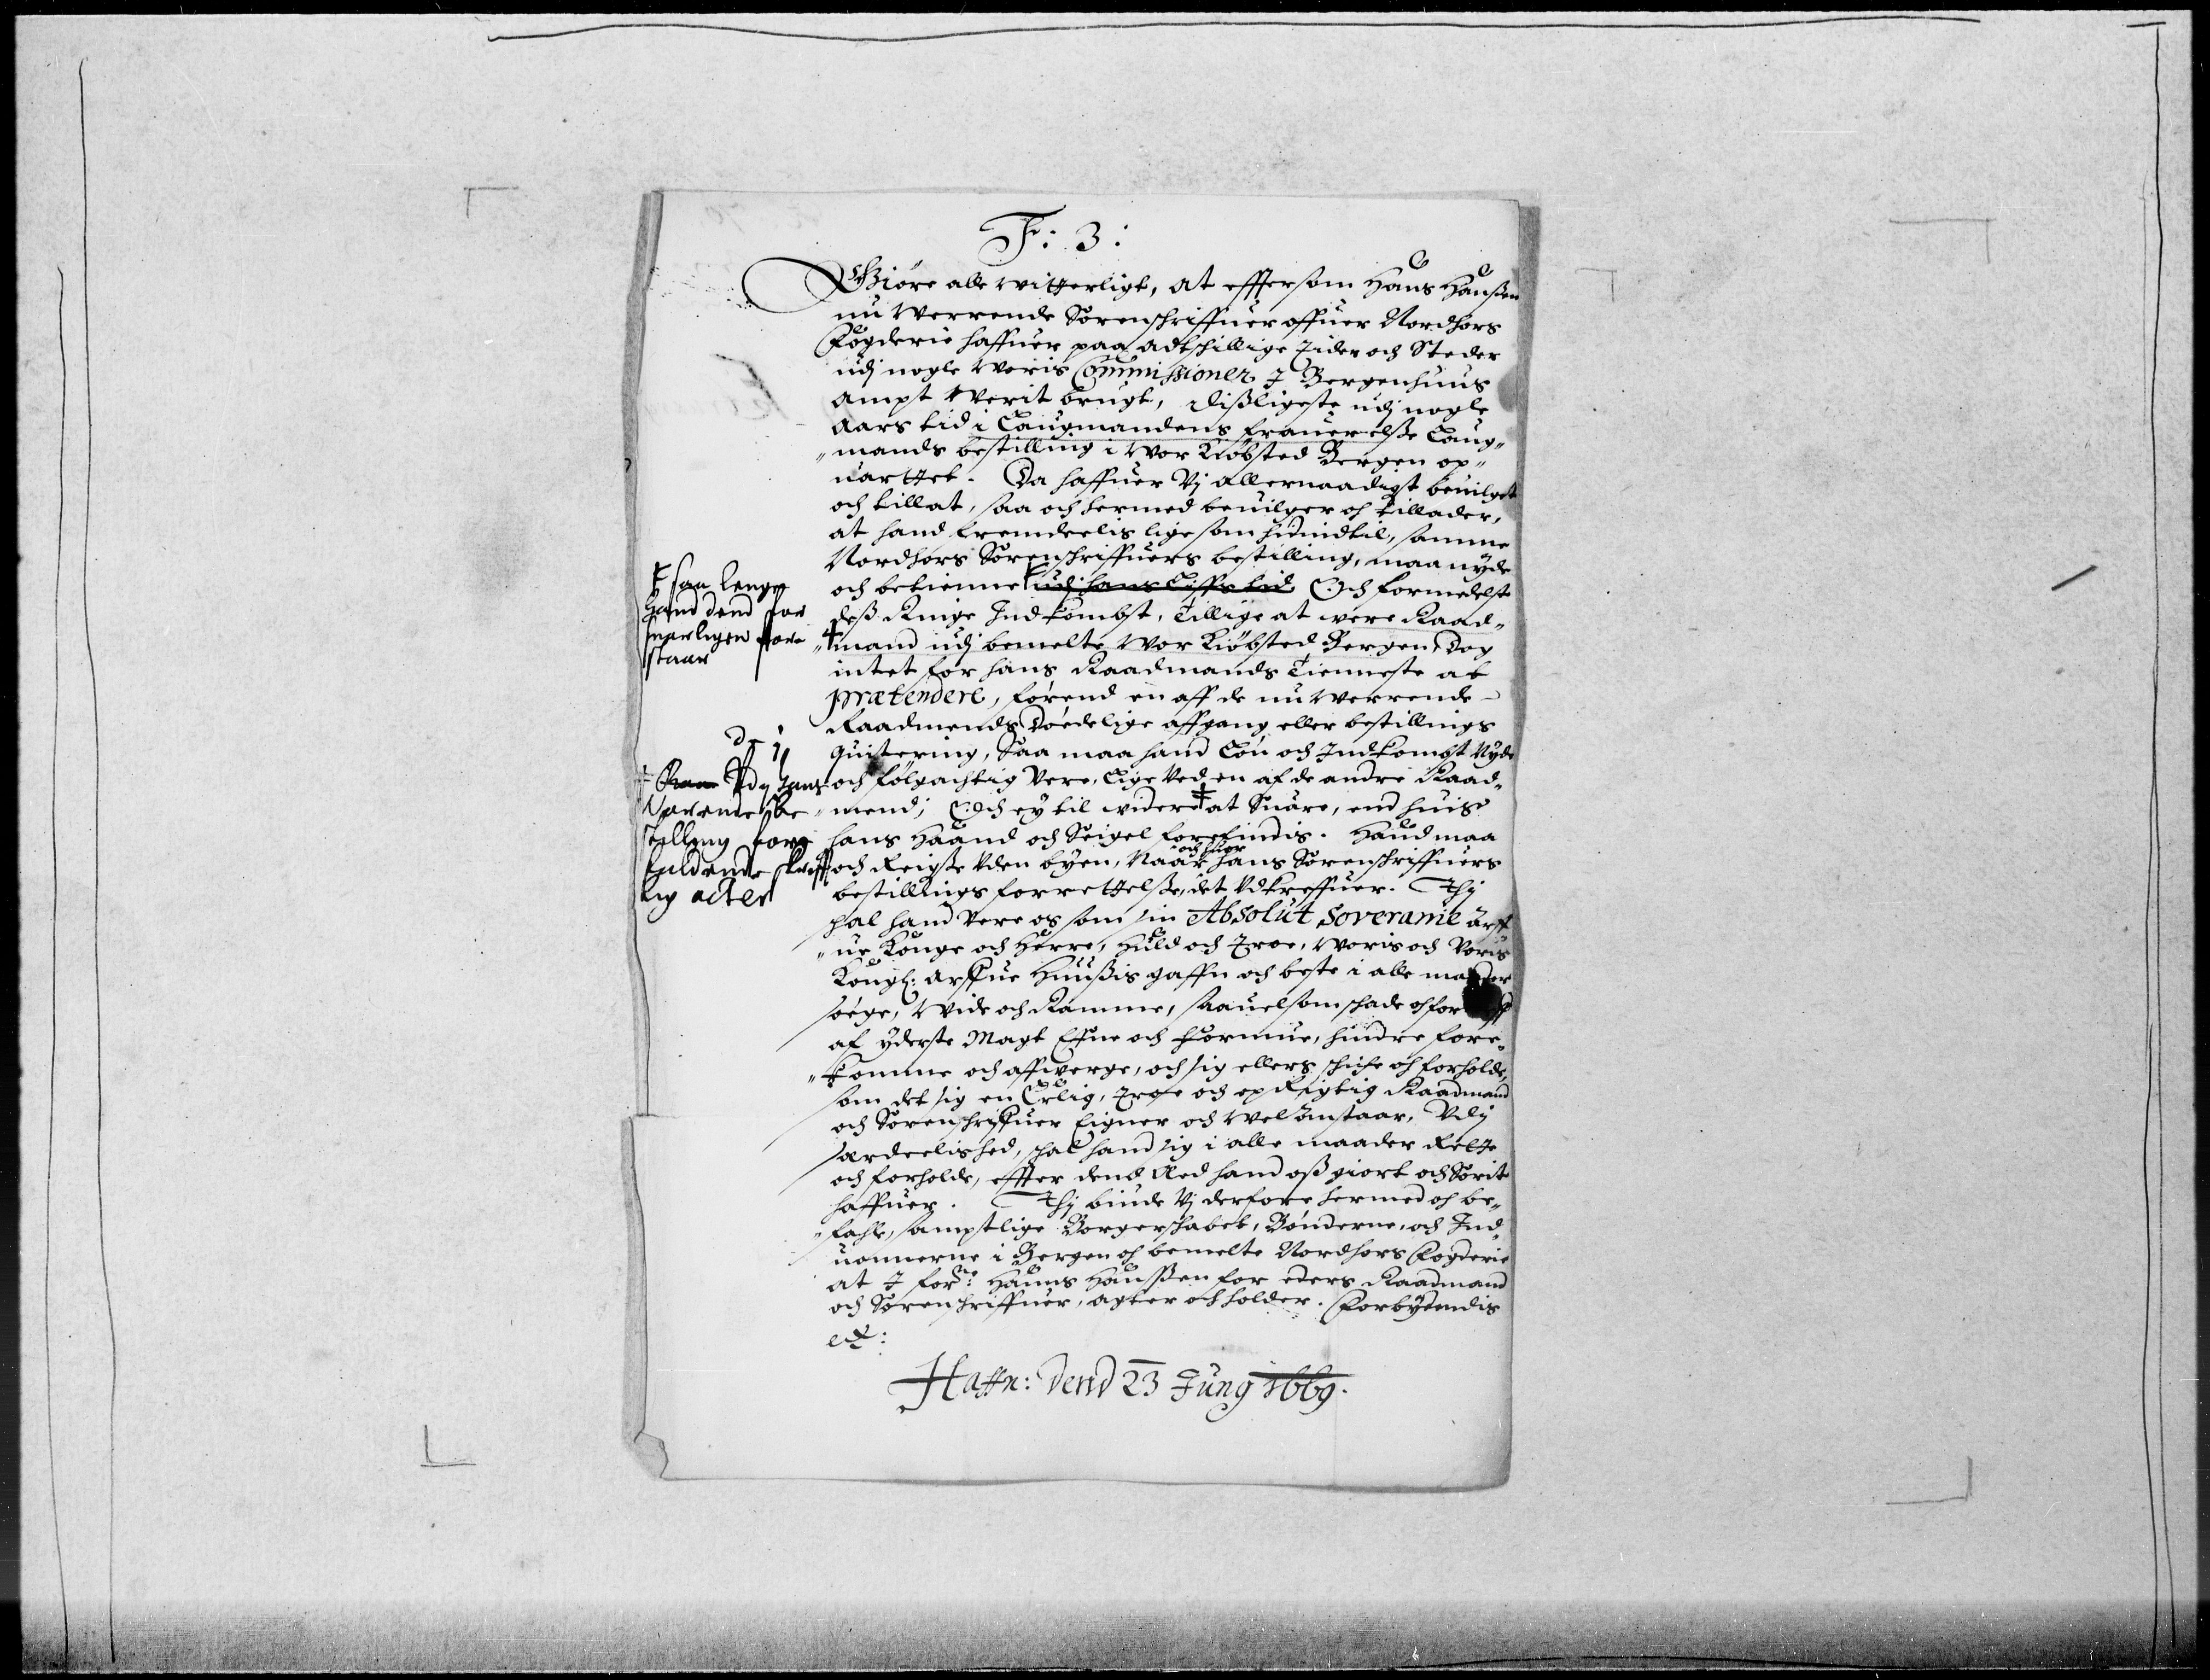 Fr: 3:
Giöre alle witterligt, at efftersom Hans Hanßen
nu werrende Sorenschriffuer offuer Nordhors
Fogderie haffuer paa adtschillige tider och Steder
udj nogle woris Commissioner I Bergenhuus
ampt werit brugt, dißligeste udj nogle
aars tid i Laugmandens frauerelße Laug-
mands bestilling i wor Kiöbsted Bergen op-
uarttet. Da haffuer Vj allernaadigst beuilget
och tillat, saa och hermed beuilger och tillader,
at hand fremdeelis lige som hidindtil, samme
Nordhors Sorenschriffuers bestilling, maa nyde
och betienne udj hans Liffs tid Och formedelst
deß Ringe Indkombst, tillige at were Raad-
mand udj bemelte wor Kiöbsted Bergen, Dog
intet for hans Raadmands Tienneste at
prætendere, förend en aff de nu werrende
Raadmends dödelige affgang eller bestillings
quitering, Saa maa hand Lön och Indkombst Nyde
och fölgachtig Vere, Lige ved en af de andre Raad-
mend; Och ey til widere at Suare, end huis
hans Haand och Seigel forefindis. Hand maa
och Reigße uden byen, Naar och huor hans Sorenschriffuers
bestillings forrettelße, det Udkreffuer. Thj
schal hand Vere os som sin Absolut Soveranie arff-
ue Konge och Herre, Huld och Troe, woris och Voris
Kongl: arffue Huußis gaffn och beste i alle maader
söege, wide och Ramme, saauelsom schade och
af yderste Magt Effne och formue, hindre fore-
komme och affwerge, och sig ellers schicke och forholde,
som det sig en Erlig, Troe och op Rigtig Raadmand
och Sorenschriffuer Eigner och wel anstaar. Udj
særdeelished, schal hand sig i alle maader Rette
och forholde, effter dend Aed hand oß giort och Sorit
haffuer. Thj biude Vj derfore hermed och be-
fahle, samptlige Borgerschabet, Bönderne, och Ind-
uonnerne i Bergen och bemelte Nordhors Fogderie
at I forne: Hanns Hanßen for eders Raadmand
och Sorenschriffuer, agter och holder. Forbydendis
etc:
Haffn: dend 23 Juny 1669.
saa lenge
hand dend for
suarligen fore
staar
Udj hans
Værende be
stilling fore
faldende schriff
lig acter